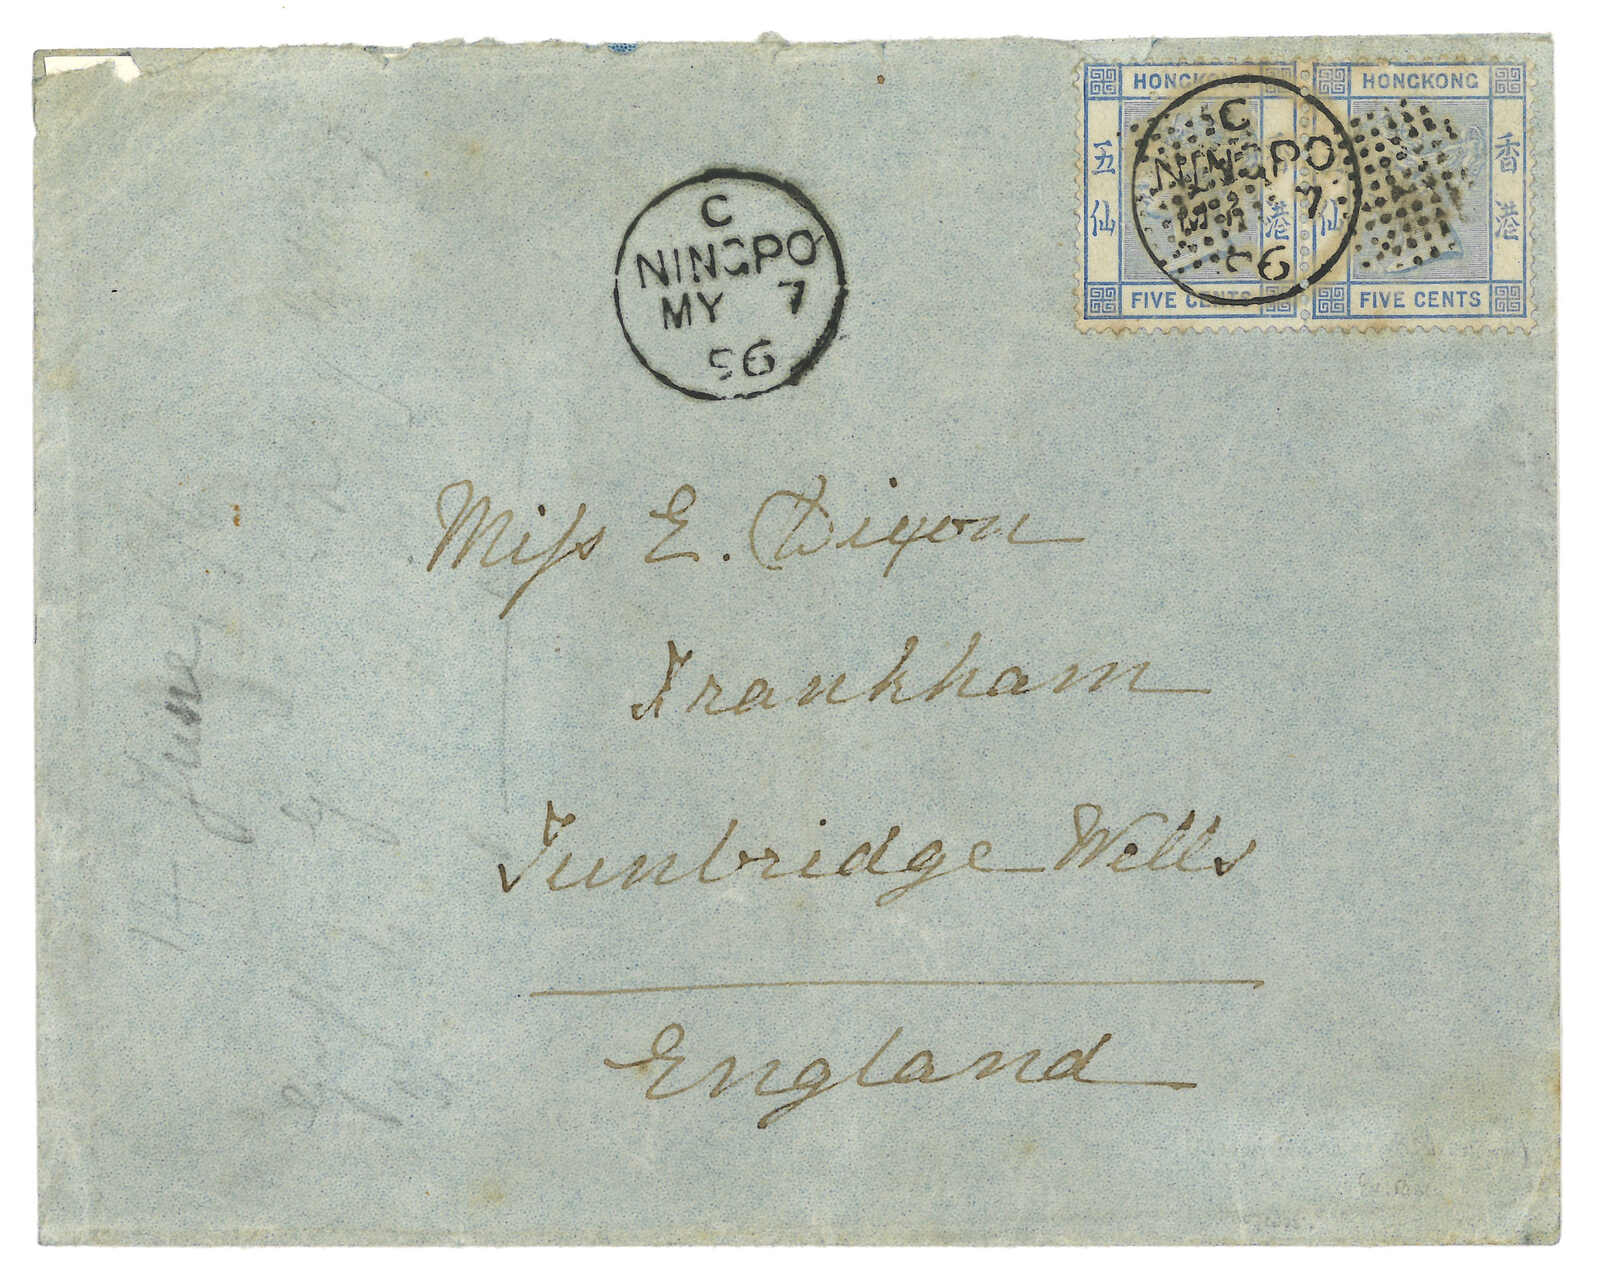 HONGKONG HONGKONG
五仙 香港 五仙 香港
FIVE CENTS FIVE CENTS
C
NINGPO
MY 7
96
C
NINGPO
MY 7
96
Miss E. Dixon
Frankham
Tunbridge Wells
England
14 June